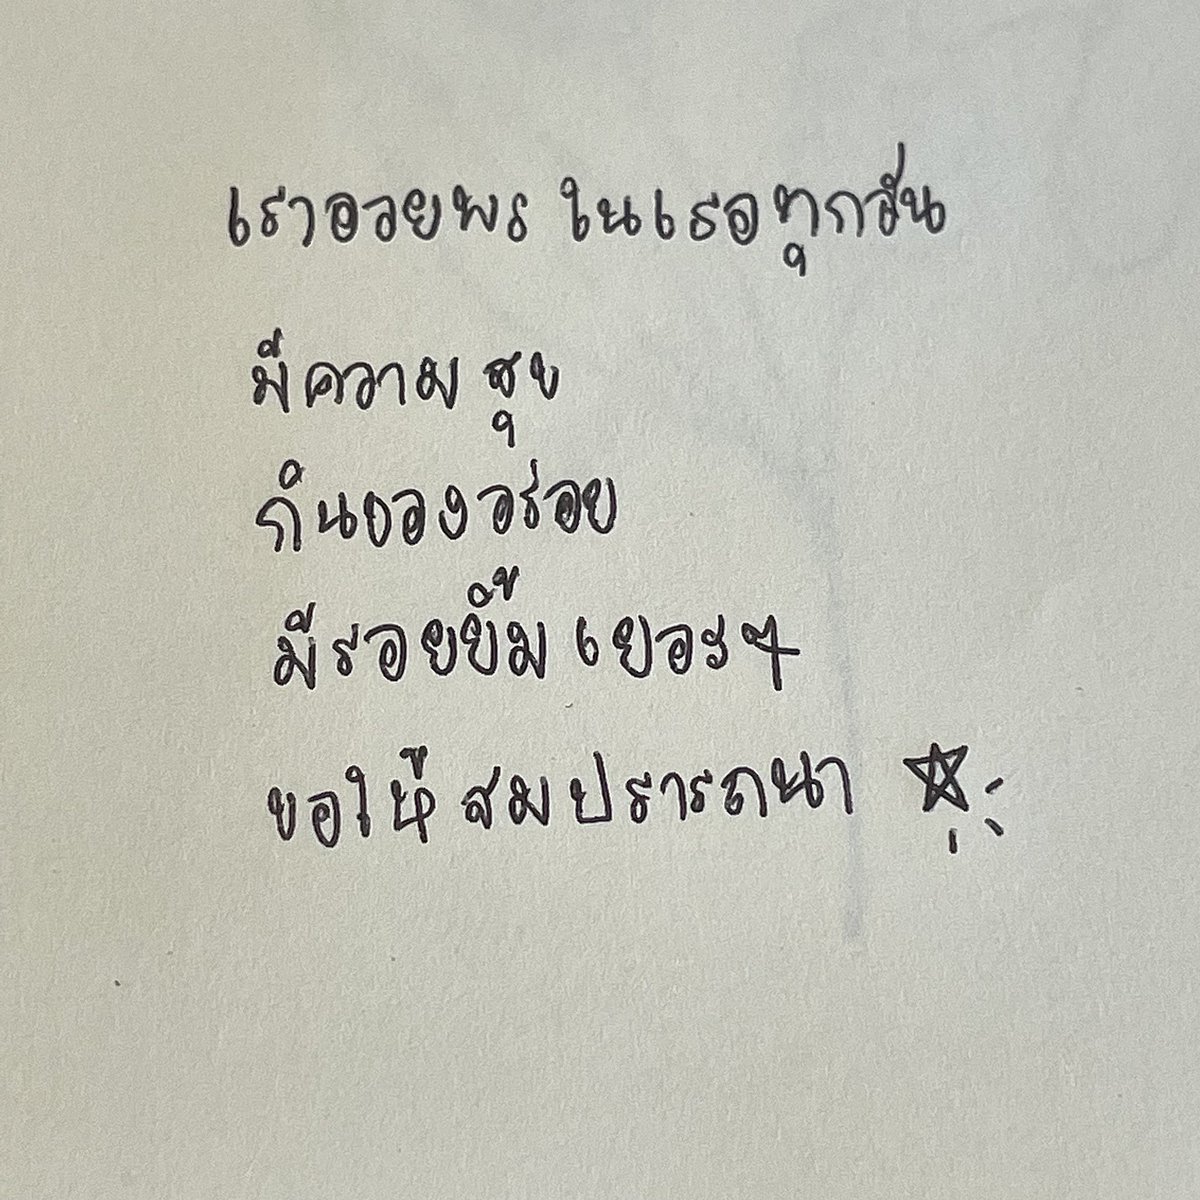 เราอวยพร ในเธอทุกวัน
มีความสุข
กินของอร่อย
มีรอยยิ้มเยอะๆ
ขอให้สมปรารถนา